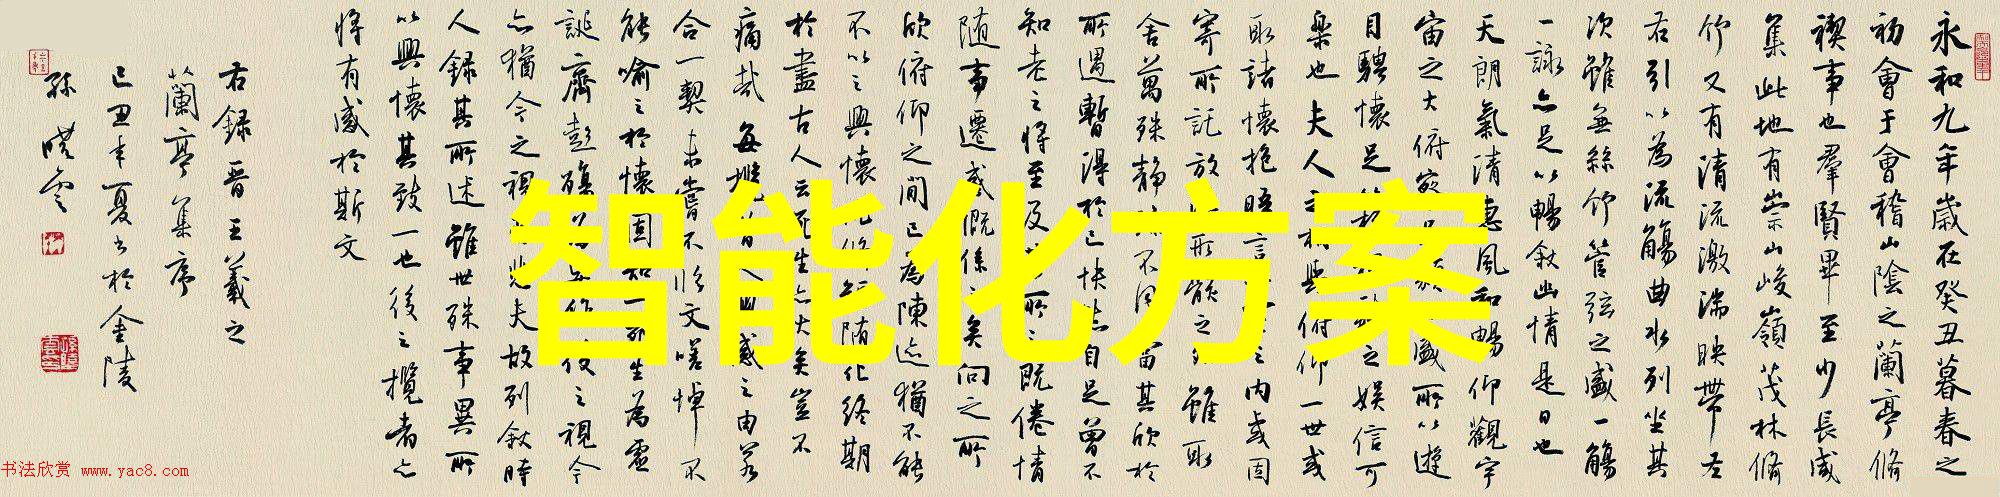 永和九年歲在癸丑暮春之
初會于會稽山陰之蘭亭脩
禊事也羣賢畢至少長咸
集此地有崇山峻嶺茂林脩
竹又有清流激湍映帶左
右引以為流觴曲水列坐其
次雖無絲竹管弦之盛一觴
一詠亦足以暢敘幽情是日也
天朗氣清惠風和暢仰觀宇
宙之大俯察品類之盛所以遊
目騁懷足以極視聽之娛信可
樂也夫人之相與俯仰一世或
取諸懷抱晤言一室之內或因
寄所託放浪形骸之外雖取
舍萬殊靜躁不同當其欣於
所遇暫得於己快然自足曾不
知老之將至及其所之既倦情
隨事遷感慨係之矣向之所
欣俯仰之間已為陳迹猶不能
不以之興懷況脩短隨化終期
於盡古人云死生亦大矣豈不
痛哉每攬昔人興感之由若
合一契未嘗不臨文嗟悼不
能喻之於懷固知一死生為虛
誕齊彭殤為妄作後之視今
亦猶今之視昔悲夫故列敘時
人錄其所述雖世殊事異所
以興懷其致一也後之攬者亦
將有感於斯文
右錄晉王羲之
蘭亭集序
己丑年夏書於金陵
孫曉雲
智能化方案
书法欣赏 www.yac8.com